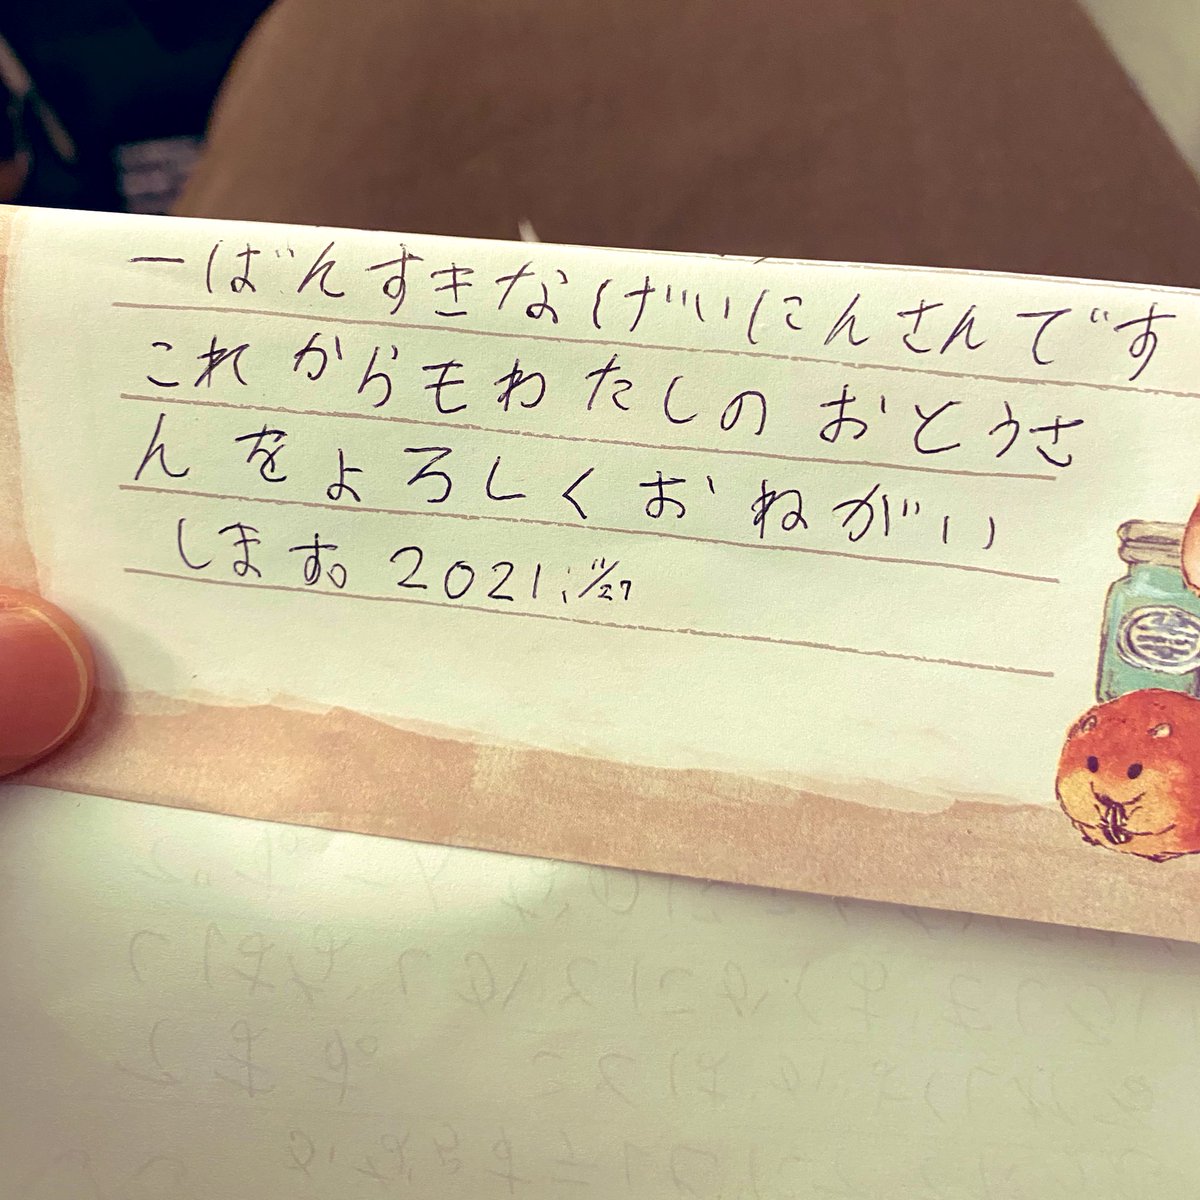 一ばんすきなげいにんさんです
これからもわたしのおとうさ
んをよろしくおねがい
します。2021.11/27